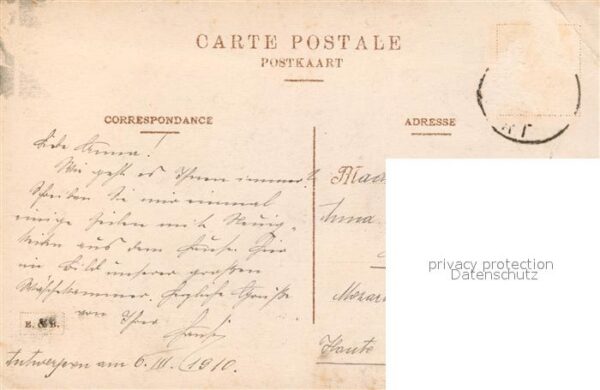 CARTE POSTALE
POSTKAART
CORRESPONDANCE
ADRESSE
Liebe Anna!
Wie geht es Ihnen immer?
Schreiben Sie mir einmal
einige Zeilen mit Neuig-
keiten aus dem Hause. Hier
ein Bild unserer großen
Wäschekammer. Herzliche Grüße
von Ihrer
E. & B.
Antwerpen am 6. III. 1910.
Anna
Mozar
privacy protection
Datenschutz